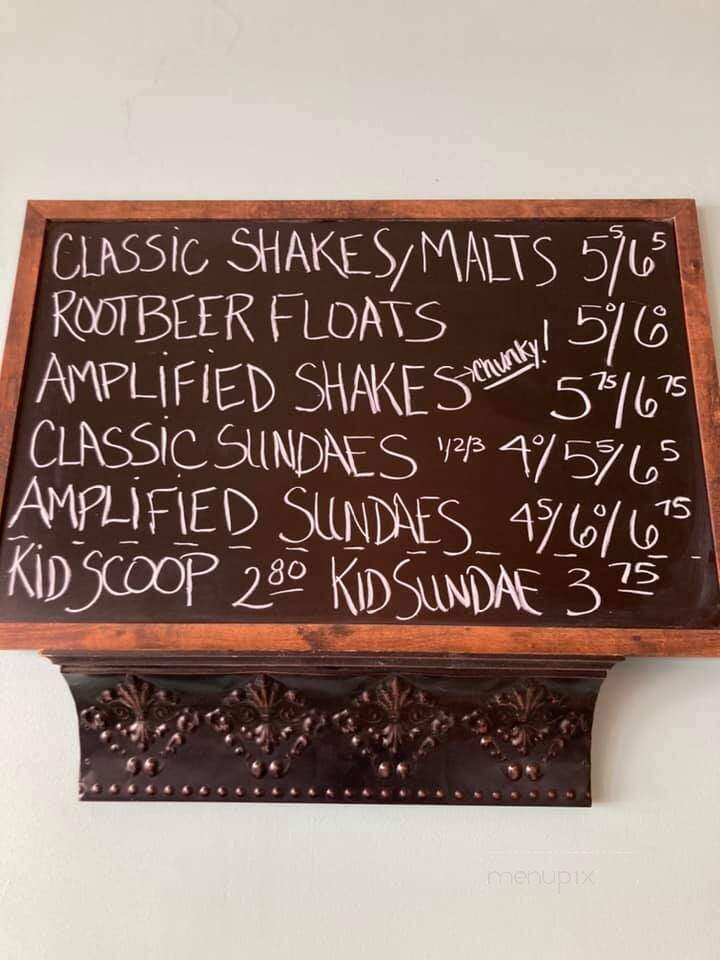 CLASSIC SHAKES/MALTS 5⁵/6⁵
ROOTBEER FLOATS 5⁰/6⁰
AMPLIFIED SHAKES →Chunky! 5⁷⁵/6⁷⁵
CLASSIC SUNDAES 1/2/3 4⁰/5⁵/6⁵
AMPLIFIED SUNDAES 4⁵/6⁰/6⁷⁵
KID SCOOP 2⁸⁰ KID SUNDAE 3⁷⁵
menupix